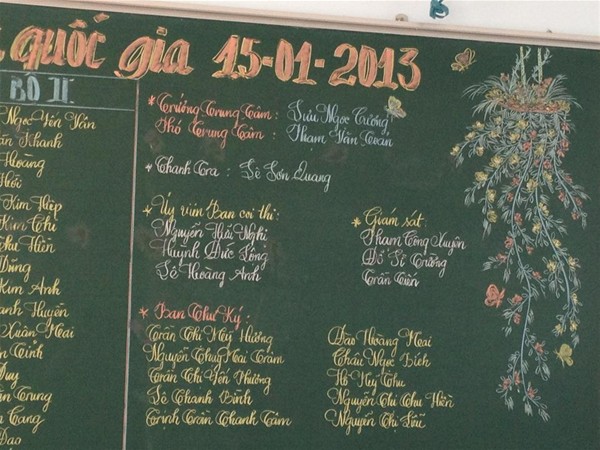 quốc gia 15-01-2013
BỘ II
Ngọc Yến Vân
Khanh
Hoàng
Kim Hiệp
Kim Chi
Thu Hiền
Dũng
Kim Anh
anh Huyền
Xuân Mai
Duy
Trung
Cang
Đào
* Trưởng Trung Tâm : Lưu Ngọc Trường
Phó Trung Tâm : Phạm Văn Toàn
* Thanh Tra : Lê Sơn Quang
* Ủy viên Ban coi thi :
Nguyễn Hải Nghi
Huỳnh Đức Lông
Lê Hoàng Anh
* Giám sát :
Phạm Công Xuyên
Đỗ Sĩ Trường
Trần Tiến
* Ban Thư Ký :
Trần Thị Mỹ Hương
Nguyễn Thụy Mai Trâm
Trần Thị Yến Phương
Lê Thanh Bình
Trịnh Trần Thanh Tâm
Đào Hoàng Mai
Châu Ngọc Bích
Hồ Mỹ Thu
Nguyễn Thị Thu Hiền
Nguyễn Thị Liễu